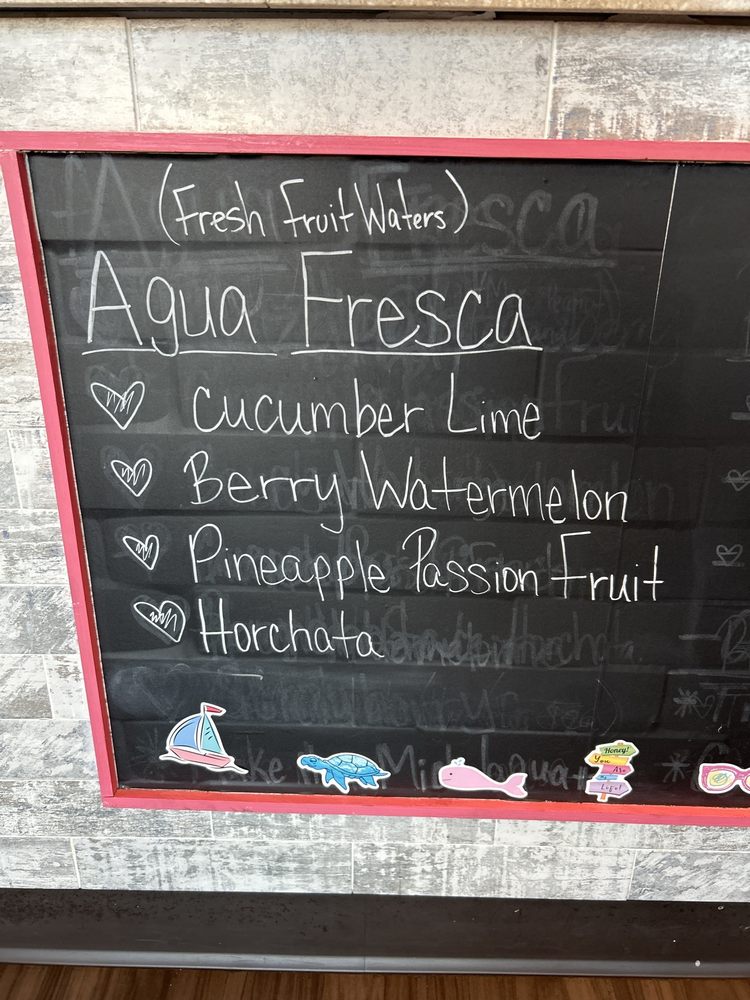 (Fresh Fruit Waters)
Agua Fresca
Cucumber Lime
Berry Watermelon
Pineapple Passion Fruit
Horchata
Honey!
You
Are